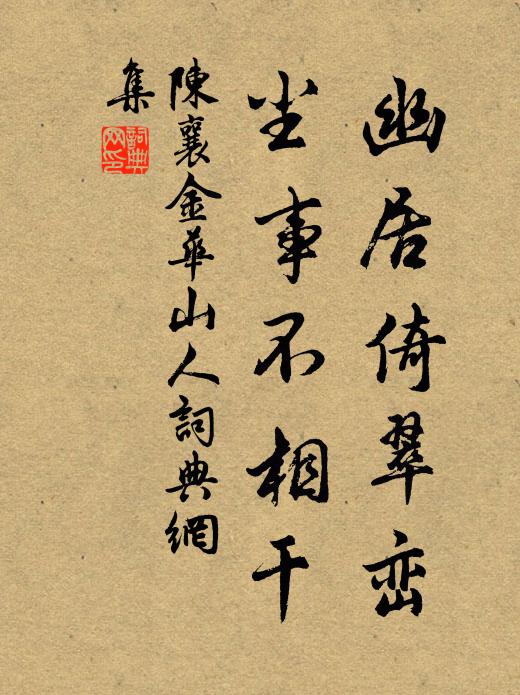 幽居倚翠峦
尘事不相干
陳襄金華山人詞典網
集
詞典
网印